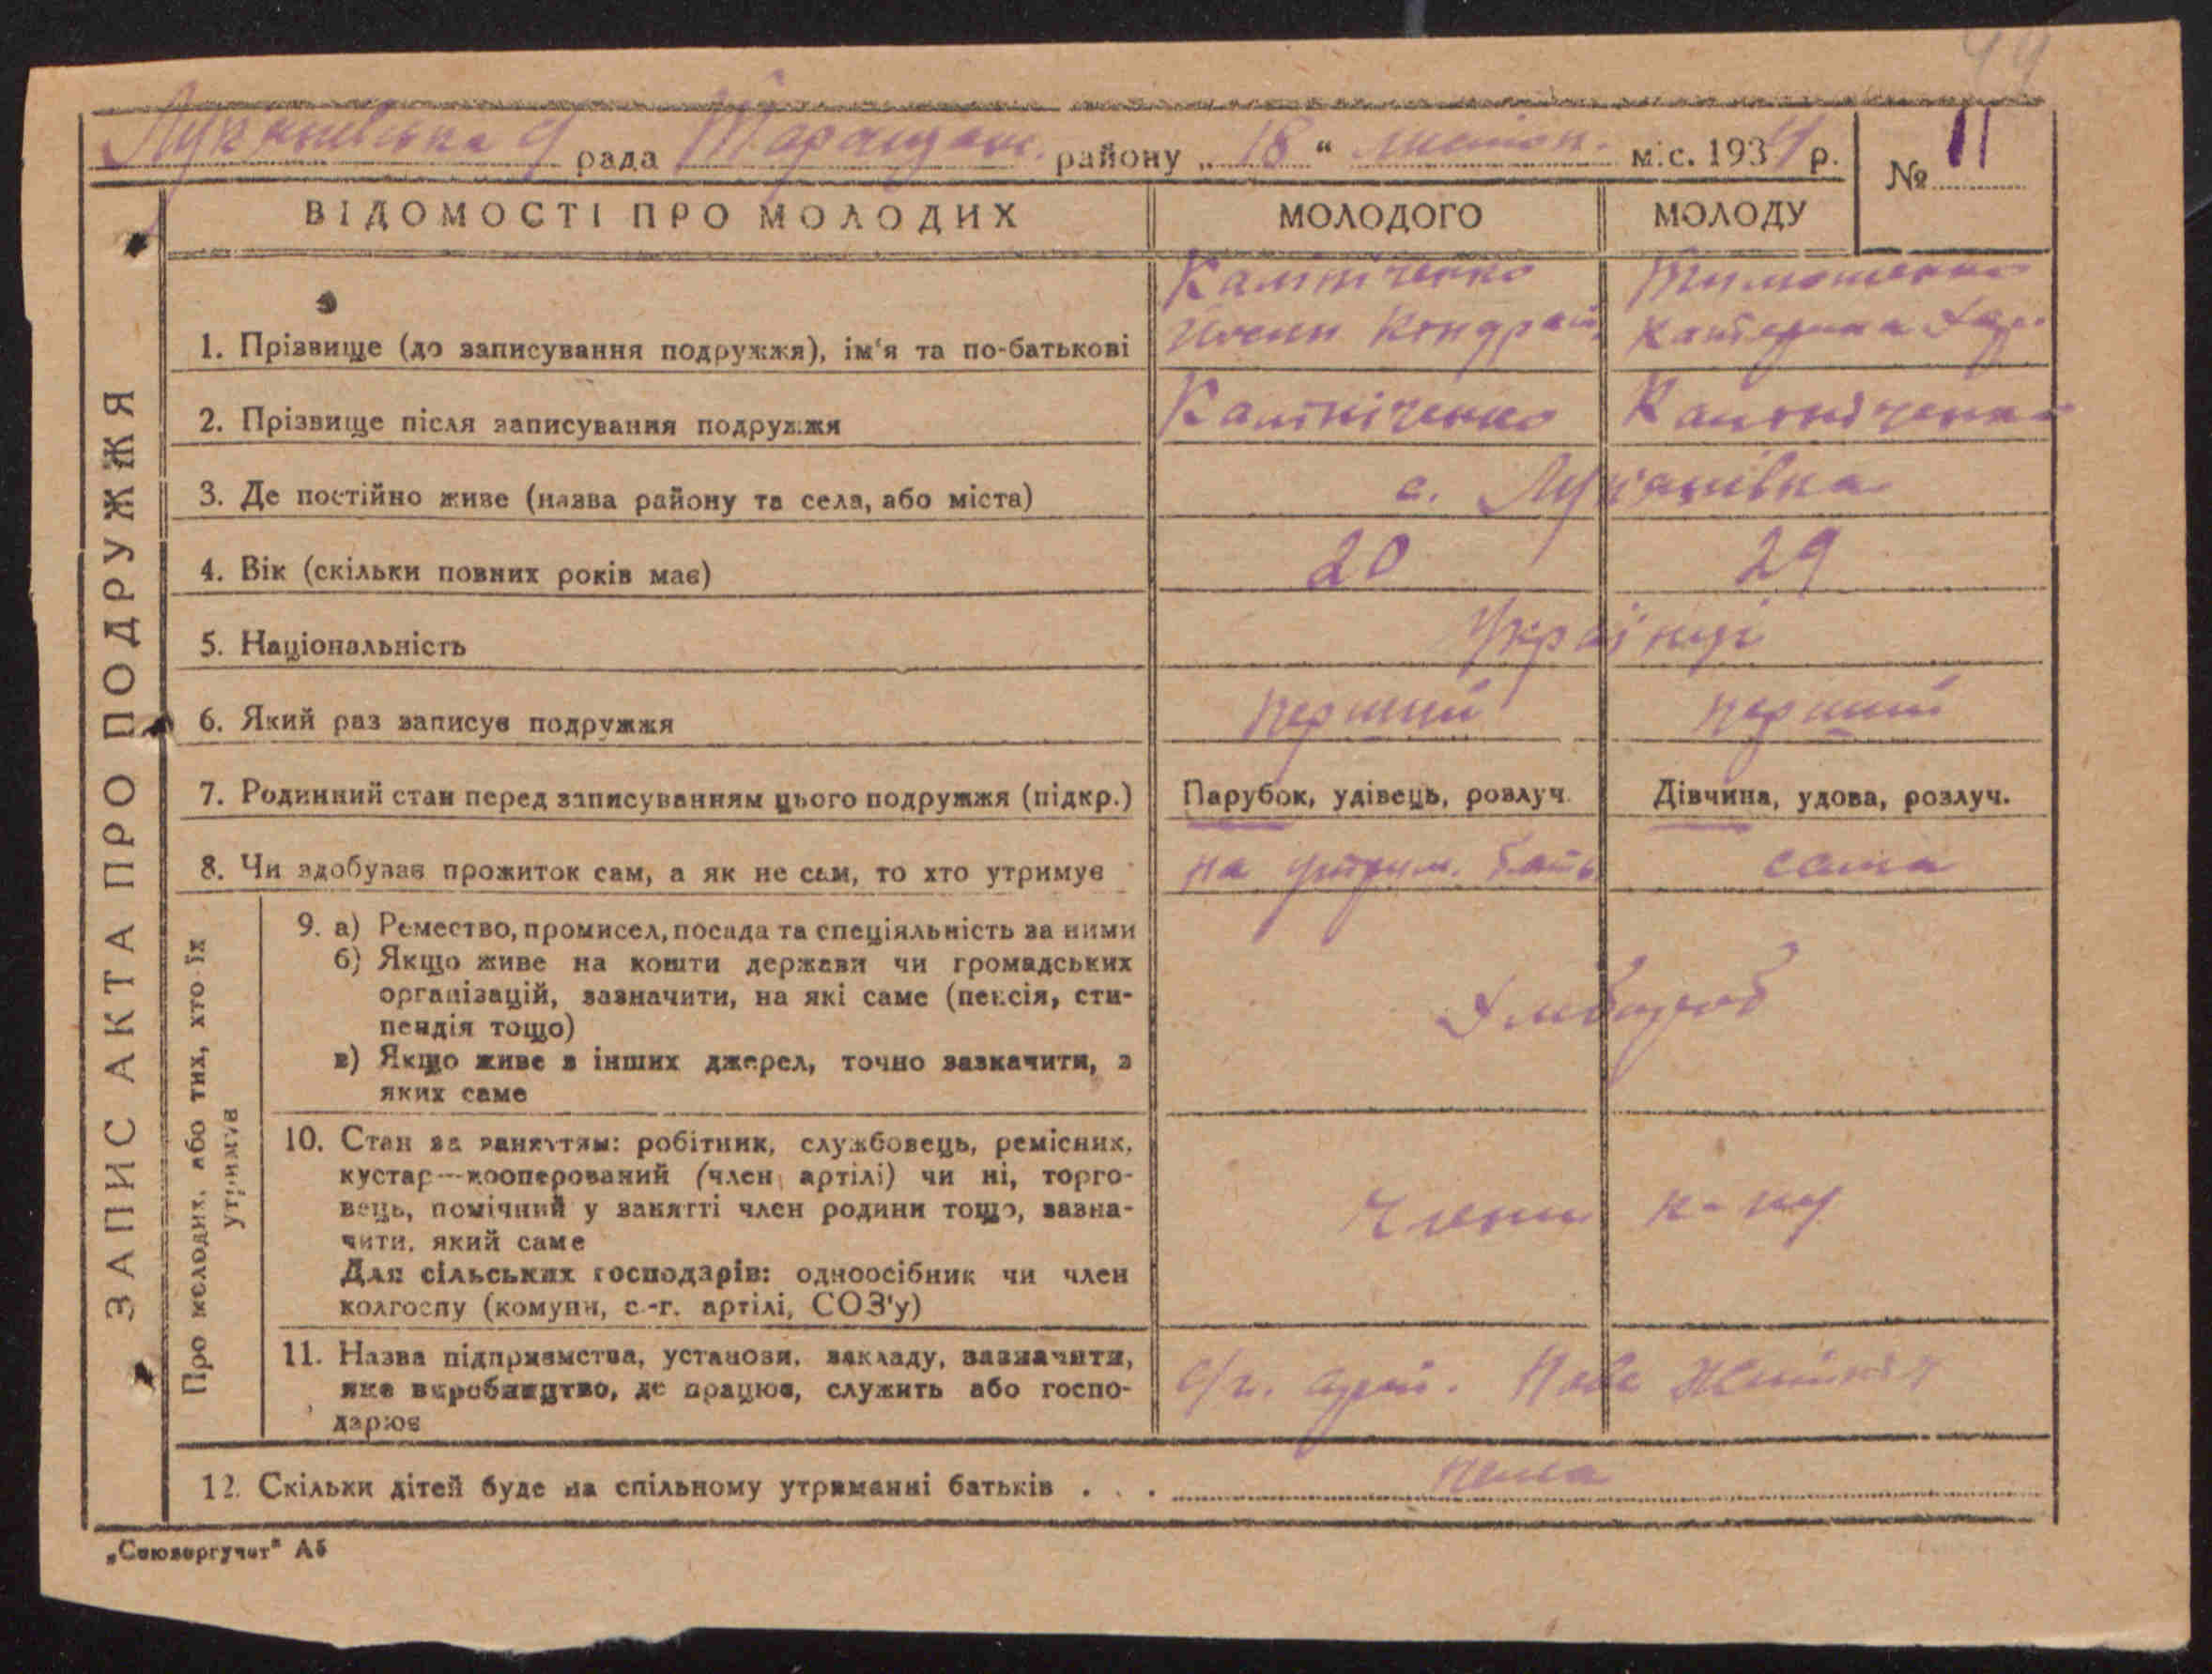 Лукашівська рада Таращанс. району „18“ листоп. міс. 1934 р. № 11
ВІДОМОСТІ ПРО МОЛОДИХ МОЛОДОГО МОЛОДУ
ЗАПИС АКТА ПРО ПОДРУЖЖЯ
Тимошенко
1. Прізвище (до записування подружжя), ім'я та по-батькові Кондрат. Катерина
2. Прізвище після записування подружжя Калтніченко
3. Де постійно живе (назва району та села, або міста) с. Лукашівка
4. Вік (скільки повних років має) 20 29
5. Національність Українці
6. Який раз записує подружжя перший перший
7. Родинний стан перед записуванням цього подружжя (підкр.) Парубок, удівець, розлуч. Дівчина, удова, розлуч.
8. Чи здобував прожиток сам, а як не сам, то хто утримує на утрим. бать сама
Про молодих, або тих, хто їх
утримув
9. а) Ремество, промисел, посада та спеціяльність за ними
б) Якщо живе на кошти держави чи громадських
організацій, зазначити, на які саме (пенсія, сти-
пендія тощо)
в) Якщо живе з інших джерел, точно зазначити, з
яких саме
Хлібороб
10. Стан за заняттям: робітник, службовець, ремісник,
кустар—кооперований (член артілі) чи ні, торго-
вець, помічний у занятті член родини тощо, зазна-
чити, який саме
Для сільських господарів: одноосібник чи член
колгоспу (комуни, с.-г. артілі, СОЗ'у)
Члени
11. Назва підприємства, установи, закладу, зазначити,
яке виробництво, де працює, служить або госпо-
дарює
с/г. арт. Нове Життя
12. Скільки дітей буде на спільному утриманні батьків . . . нема
„Союзоргучет“ А5